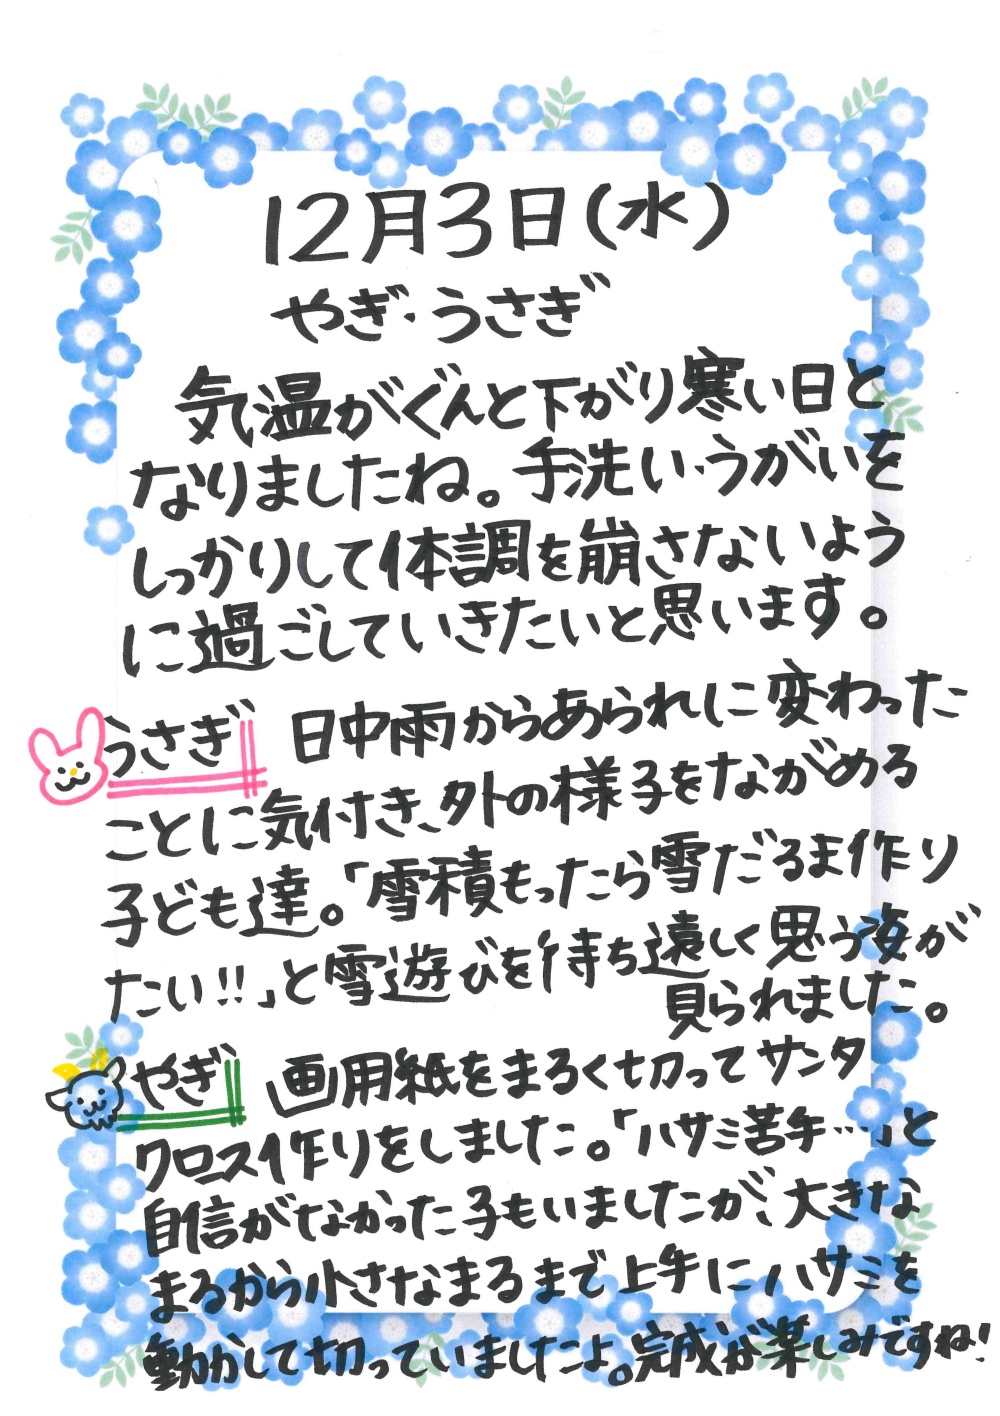 12月3日(水)
やぎ・うさぎ
気温がぐんと下がり寒い日と
なりましたね。手洗い・うがいを
しっかりして体調を崩さないよう
に過ごしていきたいと思います。
うさぎ 日中雨からあられに変わった
ことに気付き、外の様子をながめる
子ども達。「雪積もったら雪だるま作り
たい!!」と雪遊びを待ち遠しく思う姿が
見られました。
やぎ 画用紙をまるく切ってサンタ
クロス作りをしました。「ハサミ苦手…」と
自信がなかった子もいましたが、大きな
まるから小さなまるまで上手にハサミを
動かして切っていましたよ。完成が楽しみですね!